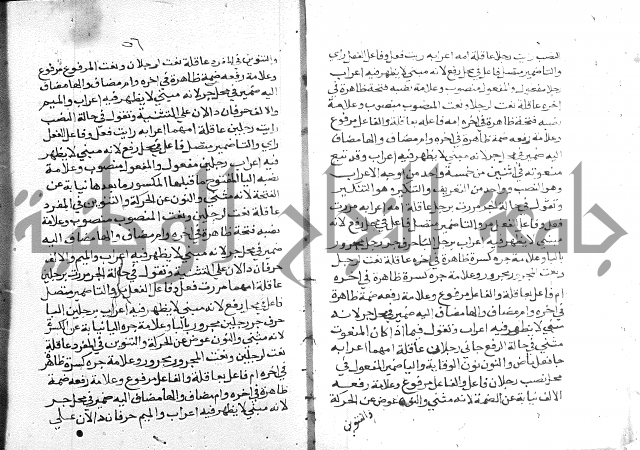 النصب رايت رجلا عاقلة امه اعرابه رايت فعل وفاعل الفعل راي
والتا ضمير متصل فاعل في محل رفع لانه مبني لا يظهر فيه اعراب
رجلا مفعول والمفعول منصوب وعلامة نصبه فتحة ظاهرة في
اخره عاقلة نعت لرجلا ونعت المنصوب منصوب وعلامة
نصبه فتحة ظاهرة في اخره امه فاعله بعاقلة والفاعل مرفوع
وعلامة رفعه ضمة ظاهرة في اخره وام مضاف والها مضاف
اليه ضمير في محل جر لانه مبني لا يظهر فيه اعراب وقد تبع
منعوته في اثنين من خمسة واحد من اوجه الاعراب
وهو النصب وواحد من التعريف والتنكير وهو التنكير
وتقول في حالة الجر مررت برجل عاقلة امه اعرابه مررت
فعل وفاعل الفعل مر والتا ضمير متصل فاعل في محل رفع لانه
مبني لا يظهر فيه اعراب برجل البا حرف جر رجل مجرور
بالبا وعلامة جره كسرة ظاهرة في اخره عاقلة نعت لرجل
ونعت المجرور مجرور وعلامة جره كسرة ظاهرة في اخره
ام فاعل بعاقلة والفاعل مرفوع وعلامة رفعه ضمة ظاهرة
في اخره وام مضاف والها مضاف اليه ضمير في محل جر لانه
مبني لا يظهر فيه اعراب وتقول فيما اذا كان المنعوت
مثنى في حالة الرفع جاني رجلان عاقلة امهما اعرابه
جا فعل ماض والنون نون الوقاية واليا ضمير المفعول في
محل نصب رجلان فاعل والفاعل مرفوع وعلامة رفعه
الالف نيابة عن الضمة لانه مثنى والنون عوض عن الحركة
والتنوين
٥٦
والتنوين في المفرد عاقلة نعت لرجلان ونعت المرفوع مرفوع
وعلامة رفعه ضمة ظاهرة في اخره وام مضاف والها مضاف
اليه ضمير في محل جر لانه مبني لا يظهر فيه اعراب والميم
والالف حرفان دالان على التثنية وتقول في حالة النصب
رايت رجلين عاقلة امهما اعرابه رايت فعل وفاعل الفعل
راي والتا ضمير متصل فاعل في محل رفع لانه مبني لا يظهر
فيه اعراب رجلين مفعول والمفعول منصوب وعلامة
نصبه اليا المفتوح ما قبلها المكسور ما بعدها نيابة عن
الفتحة لانه مثنى والنون عن الحركة والتنوين في المفرد
عاقلة نعت لرجلين ونعت المنصوب منصوب وعلامة
نصبه فتحة ظاهرة في اخره وام مضاف والها مضاف اليه
ضمير في محل جر لانه مبني لا يظهر فيه اعراب والميم والالف
حرفان دالان على التثنية وتقول في حالة الجر مررت برجلين
عاقلة امهما مررت فعل وفاعل الفعل مر والتا ضمير متصل
فاعل في محل رفع لانه مبني لا يظهر فيه اعراب برجلين البا
حرف جر رجلين مجرور بالبا وعلامة جره اليا نيابة عن الكسرة
لانه مثنى والنون عوض عن الحركة والتنوين في المفرد عاقلة
نعت لرجلين ونعت المجرور مجرور وعلامة جره كسرة ظاهرة
في اخره ام فاعل بعاقلة والفاعل مرفوع وعلامة رفعه ضمة
ظاهرة في اخره وام مضاف والها مضاف اليه ضمير في محل جر
لانه مبني لا يظهر فيه اعراب والميم حرفان دالان على
جامعة النجاح الوطنية